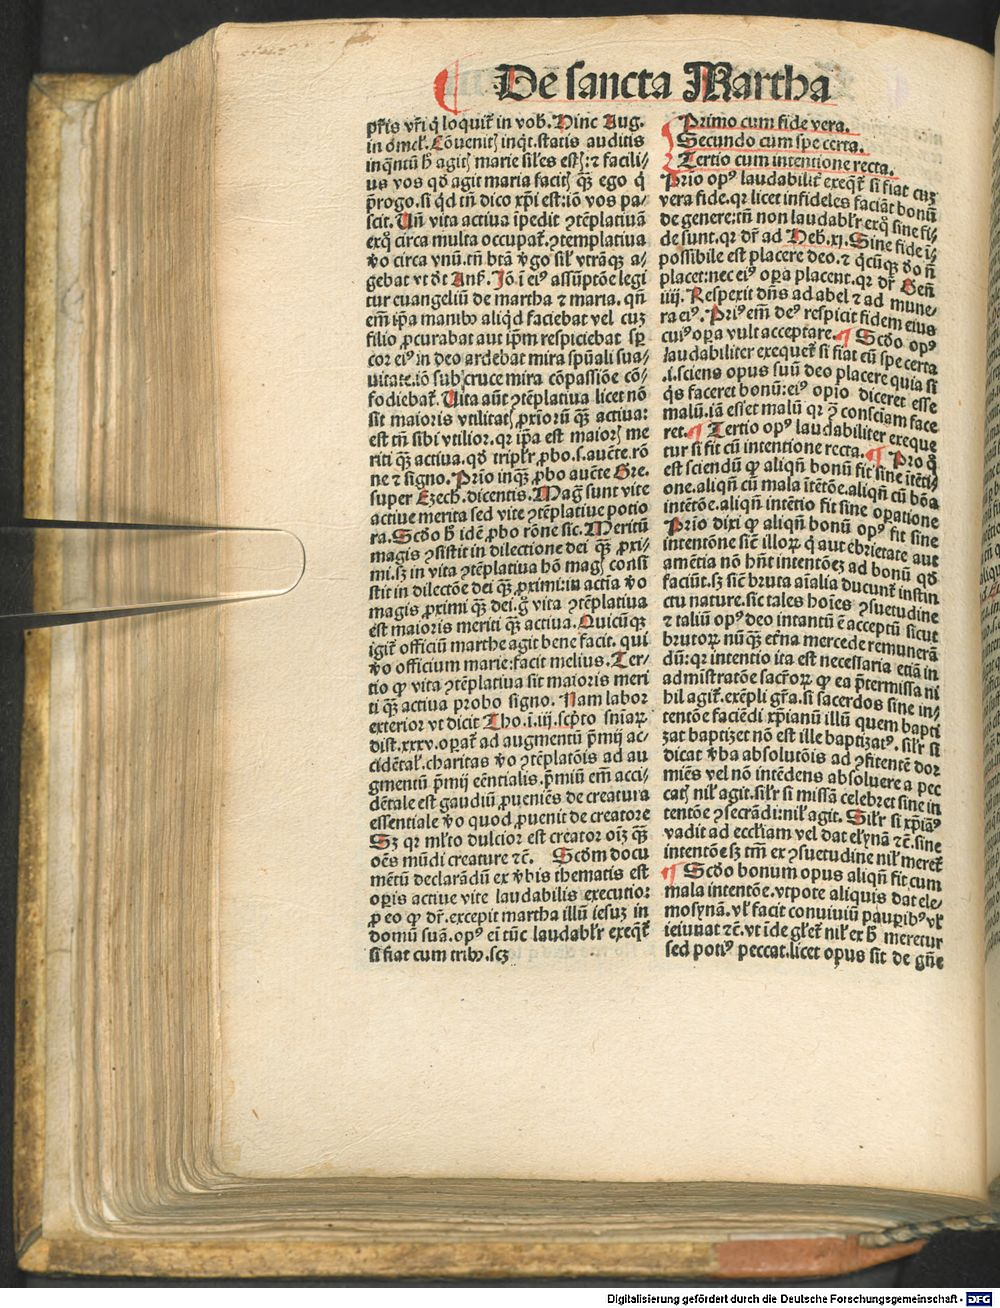 De sancta Martha
pr̄is vr̄i q̇ loquit̄ in vob̄. Hinc Aug.
in ōmel̄. Cōuenitꝭ inqͣt. statis auditis
inqͣntū h̄ agitꝭ marie sil̄es estꝭ: ⁊ facili/
us vos qd̄ agit maria facitꝭ qͣꝫ ego q̇
p̄rogo. si qͥd tn̄ dico xp̄i est: iō vos pa/
scit. Un̄ vita actiua īpedit ꝯtēplatiuā
exqͦ circa multa occupat̄. ꝯtemplatiua
v̄o circa vnū. tn̄ btā v̄go sil̄ vtrāqꝫ a/
gebat vt d̄t Anſ. Jō ī eiꝰ assūptōe legi
tur euangeliū de martha ⁊ maria. qn̄
em̄ ip̄a manibꝰ aliqͥd faciebat vel cuꝫ
filio ꝓcurabat aut ip̄m respiciebat sꝑ
cor eiꝰ in deo ardebat mira sp̄uāli sua/
uitate. iō sub cruce mira cōpassiōe cō/
fodiebat̄. Uita aūt ꝯtēplatiua licet nō
sit maioris vtilitatꝭ ꝓxīorū qͣꝫ actiua:
est tn̄ sibi vtilior. qꝛ ip̄a est maiorꝭ me
riti qͣꝫ actiua. qd̄ tripl̄r ꝓbo. s. auc̄te. rō
ne ⁊ signo. Prīo inqͣꝫ ꝓbo auc̄te Gre.
super Ezech. dicentis. Maḡ sunt vite
actiue merita sed vite ꝯtēplatiue potio
ra. Scd̄o h̄ idē ꝓbo rōne sic. Meritū
magis ꝯsistit in dilectione dei qͣꝫ ꝓxi/
mi. sꝫ in vita ꝯtēplatiua hō magꝭ consi
stit in dilectōe dei qͣꝫ ꝓximi: in actīa v̄o
magis ꝓximi qͣꝫ dei. g̊ vita ꝯtēplatiua
est maioris meriti qͣꝫ actiua. Quicūqꝫ
igit̄ officiū marthe agit bene facit. qui
v̄o officium marie: facit melius. Ter/
tio ꝙ vita ꝯtēplatiua sit maioris meri
ti qͣꝫ actiua probo signo. Nam labor
exterior vt dicit Tho. ī. iij. scp̄to sniaꝝ
dist. xxxv. oꝑat̄ ad augmentū p̄mij ac/
cidētal̄. charitas v̄o ꝯtēplatōis ad au
gmentū p̄mij eēntialis. p̄miū em̄ acci/
dētale est gaudiū ꝓueniēs de creatura
essentiale v̄o quod ꝓuenit de creatore
Sꝫ qꝛ ml̄to dulcior est creator oīꝫ qͣꝫ
oēs mūdi creature ⁊c̄. Scd̄m docu
mētū declarādū ex v̄bis thematis est
oꝑis actiue vite laudabilis executio:
ꝓ eo ꝙ dr̄. excepit martha illū iesuꝫ in
domū suā. opꝰ eī tūc laudabl̄r exeqͥt̄
si fiat cum tribꝰ. scꝫ
Primo cum fide vera.
Secundo cum spe certa.
Tertio cum intentione recta.
Prīo opꝰ laudabilit̄ exeqͥt̄ si fiat cuꝫ
vera fide. qꝛ licet infideles faciāt bonū
de genere: tn̄ non laudabl̄r exqͦ sine fi/
de sunt. qꝛ dr̄ ad Heb. xj. Sine fide ī/
possibile est placere deo. ⁊ qͥcūqꝫ d̄o n̄
placet: nec eiꝰ oꝑa placent. qꝛ dr̄ Gen̄
iiij. Respexit dn̄s ad abel ⁊ ad mune/
ra eiꝰ. Priꝰ em̄ deꝰ respicit fidem eius
cuiꝰ oꝑa vult acceptare. ¶ Scd̄o opꝰ
laudabiliter exequet̄ si fiat cū spe certa
.i. sciens opus suū deo placere quia si
qͥs faceret bonū: eiꝰ opīo diceret esse
malū. iā esset malū qꝛ ꝯ̄ consciam face
ret. ¶ Tertio opꝰ laudabiliter exeque
tur si fit cū intentione recta. ¶ Pro qͦ
est sciendū ꝙ aliqn̄ bonū fit sine ītēti/
one. aliqn̄ cū mala ītētōe. aliqn̄ cū bōa
intētōe. aliqn̄ intētio fit sine oꝑatione
Prīo dixi ꝙ aliqn̄ bonū opꝰ fit sine
intentōne sic̄ illoꝝ q̇ aut ebrietate aut
amētia nō hn̄t intentōeꝫ ad bonū qd̄
faciūt. sꝫ sic̄ bruta aīalia ducunt̄ instin
ctu nature. sic tales hoīes ꝯsuetudine
⁊ taliū opꝰ deo intantū ē acceptū sicut
brutoꝝ nūqͣꝫ etn̄a mercede remunerā
dū: qꝛ intentio ita est necessaria etiā in
admīstratōe sacr̄oꝝ ꝙ ea p̄termissa ni
hil agit̄. exēpli gr̄a. si sacerdos sine in/
tentōe faciēdi xp̄ianū illū quem bapti
zat baptizet nō est ille baptizatꝰ. sil̄r si
dicat v̄ba absolutōis ad ꝯfitentē dor
miēs vel nō intēdens absoluere a pec
catꝭ nil̄ agit. sil̄r si missā celebret sine in
tentōe ꝯsecrādi: nil̄ agit. Sil̄r si xp̄iāꝰ
vadit ad eccl̄iam vel dat elȳnā ⁊c̄. sine
intentōe sꝫ tm̄ ex ꝯsuetudine nil̄ meret̄
¶ Scd̄o bonum opus aliqn̄ fit cum
mala intentōe. vtpote aliquis dat ele/
mosynā. vl̄ facit conuiuiū pauꝑibꝰ vl̄
ieiunat ⁊c̄. vt īde gl̄et̄ nil̄ ex h̄ meretur
sed potiꝰ peccat. licet opus sit de gn̄e
Digitalisierung gefördert durch die Deutsche Forschungsgemeinschaft - DFG